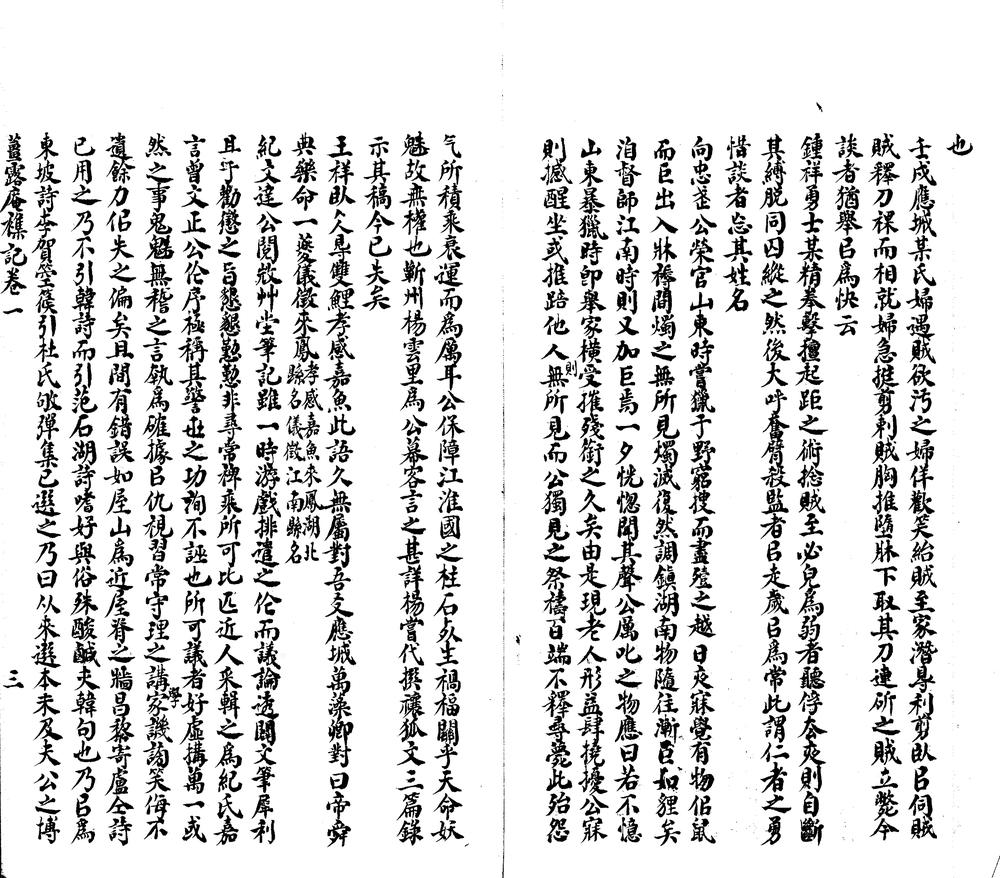 也
壬戌應城某氏婦遇賊欲汚之婦佯歡笑紿賊至家潛身利剪臥㠯伺賊
賊釋刀裸而相就婦急挺剪刺賊胸推墮牀下取其刀連斫之賊立斃今
談者猶舉㠯爲快云
鍾祥勇士某精拳擊擅起距之術捻賊至必皃爲弱者聽俘夲夾則自斷
其縛脫同囚縱之然後大呼奮臂殺監者㠯走歲㠯爲常此謂仁者之勇
惜談者忘其姓名
向忠武公榮官山東時嘗獵于野窮搜而盡殪之越日夜寐覺有物佀鼠
而巨出入牀褥閒燭之無所見燭滅復然調鎭湖南物隨往漸巨如貍矣
洎督師江南時則又加巨焉一夕恍惚聞其聲公厲叱之物應曰若不憶
山東暴獵時卽舉家橫受摧殘銜之久矣由是現老人形益肆撓擾公寐
則撼醒坐或推踣他人則無所見而公獨見之祭禱百端不釋尋薨此殆怨
气所積乘衰運而爲厲耳公保障江淮國之柱石死生禍福關乎天命妖
魅故無權也蘄州楊雲里爲公幕客言之甚詳楊嘗代撰禳狐文三篇錄
示其稿今已失矣
王祥臥冰得雙鯉孝感嘉魚此語久無屬對吾友應城萬藻卿對曰帝舜
典樂命一夔儀徵來鳳孝感嘉魚來鳳湖北縣名儀徵江南縣名
紀文達公閱微艸堂筆記雖一時游戲排遣之作而議論透闢文筆犀利
且于勸懲之旨懇懇懃懃非尋常稗乘所可比匹近人采輯之爲紀氏嘉
言曾文正公作序極稱其警世之功洵不誣也所可議者好虛搆萬一或
然之事鬼魅無稽之言執爲確據㠯仇視習常守理之講學家譏謿笑侮不
遺餘力佀失之偏矣且間有錯誤如屋山爲近屋脊之牆昌黎寄盧仝詩
已用之乃不引韓詩而引范石湖詩嗜好與俗殊酸鹹夫韓句也乃㠯爲
東坡詩李賀箜篌引杜氏㰸彈集已選之乃曰从來選本未及夫公之博
薑露庵襍記卷一
三